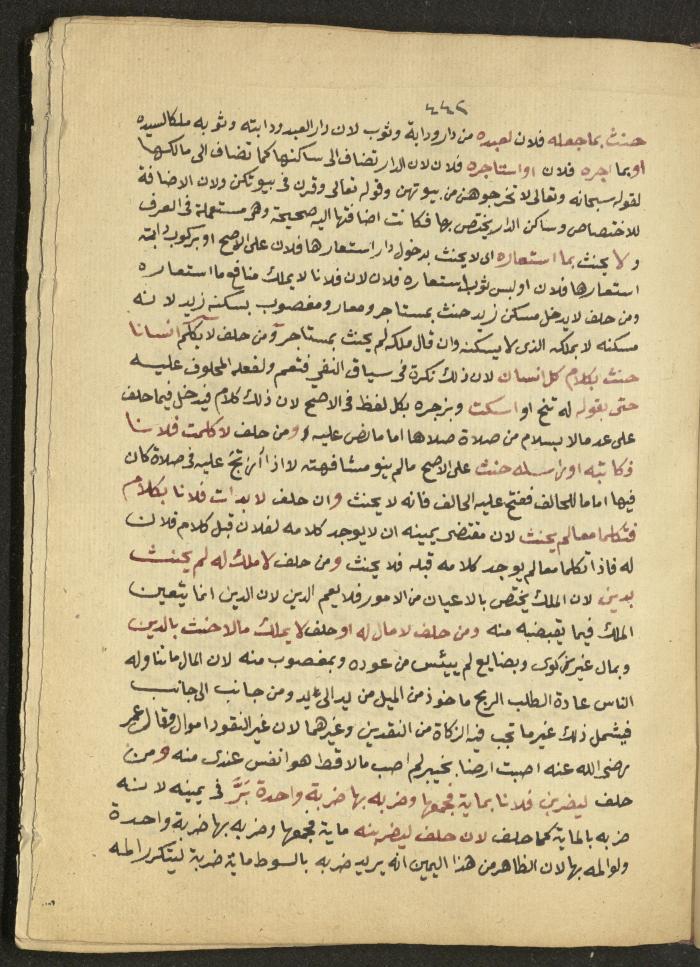 ٤٤٢
حنث بما جعله فلان لعبده من دار ودابة وثوب لان دار العبد ودابته وثوبه ملكا لسيده
او بما اجره فلان او استاجره فلان لان الدار تضاف الى ساكنها كما تضاف الى مالكها
لقوله سبحانه وتعالى لا تخرجوهن من بيوتهن وقوله تعالى وقرن في بيوتكن ولان الاضافة
للاختصاص وساكن الدار يختص بها فكانت اضافتها اليه صحيحة وهي مستعملة في العرف
ولا يحنث بما استعاره اى لا يحنث بدخول دار استعارها فلان على الاصح او بركوب دابة
استعارها فلان او لبس ثوب استعاره فلان لان فلانا لا يملك منافع ما استعاره
ومن حلف لا يدخل مسكن زيد حنث بمستاجر ومعار ومغصوب يسكنه زيد لانه
مسكنه لا بملكه الذى لا يسكنه وان قال ملكه لم يحنث بمستاجر ومن حلف لا يكلم انسانا
حنث بكلام كل انسان لان ذلك نكرة في سياق النفي فتعم ولفعله المحلوف عليه
حتى بقوله له تنح او اسكت وبزجره بكل لفظ في الاصح لان ذلك كلام فيدخل فيما حلف
على عدمه لا بسلام من صلاة صلاها اماما نص عليه ومن حلف لا كلمت فلانا
فكاتبه او راسله حنث على الاصح مالم ينو مشافهته لا اذا ارتج عليه في صلاة كان
فيها اماما للحالف ففتح عليه الحالف فانه لا يحنث وان حلف لا بدات فلانا بكلام
فتكلما معا لم يحنث لان مقتضى يمينه ان لا يوجد كلامه لفلان قبل كلام فلان
له فاذا تكلما معا لم يوجد كلامه قبله فلا يحنث ومن حلف لا ملك له لم يحنث
بدين لان الملك يختص بالاعيان من الامور فلا يعم الدين لان الدين انما يتعين
الملك فيما يقبضه منه ومن حلف لا مال له او حلف لا يملك مالا حنث بالدين
وبمال غير زكوى وبضايع لم ييئس من عوده وبمغصوب منه لان المال ما تناوله
الناس عادة لطلب الربح ماخوذ من الميل من يد الى يد ومن جانب الى جانب
فيشمل ذلك غير ما تجب فيه الزكاة من النقدين وغيرهما لان غير النقود اموال وقال عمر
رضى الله عنه اصبت ارضا بخيبر لم اصب مالا قط هو انفس عندى منه ومن
حلف ليضربن فلانا بماية فجمعها وضربه بها ضربة واحدة بَرَّ في يمينه لانه
ضربه بالماية كما حلف لان حلف ليضربنه ماية فجمعها وضربه بها ضربة واحدة
ولو المه بها لان الظاهر من هذا اليمين انه يريد ضربه بالسوط ماية ضربة ليتكرر المه